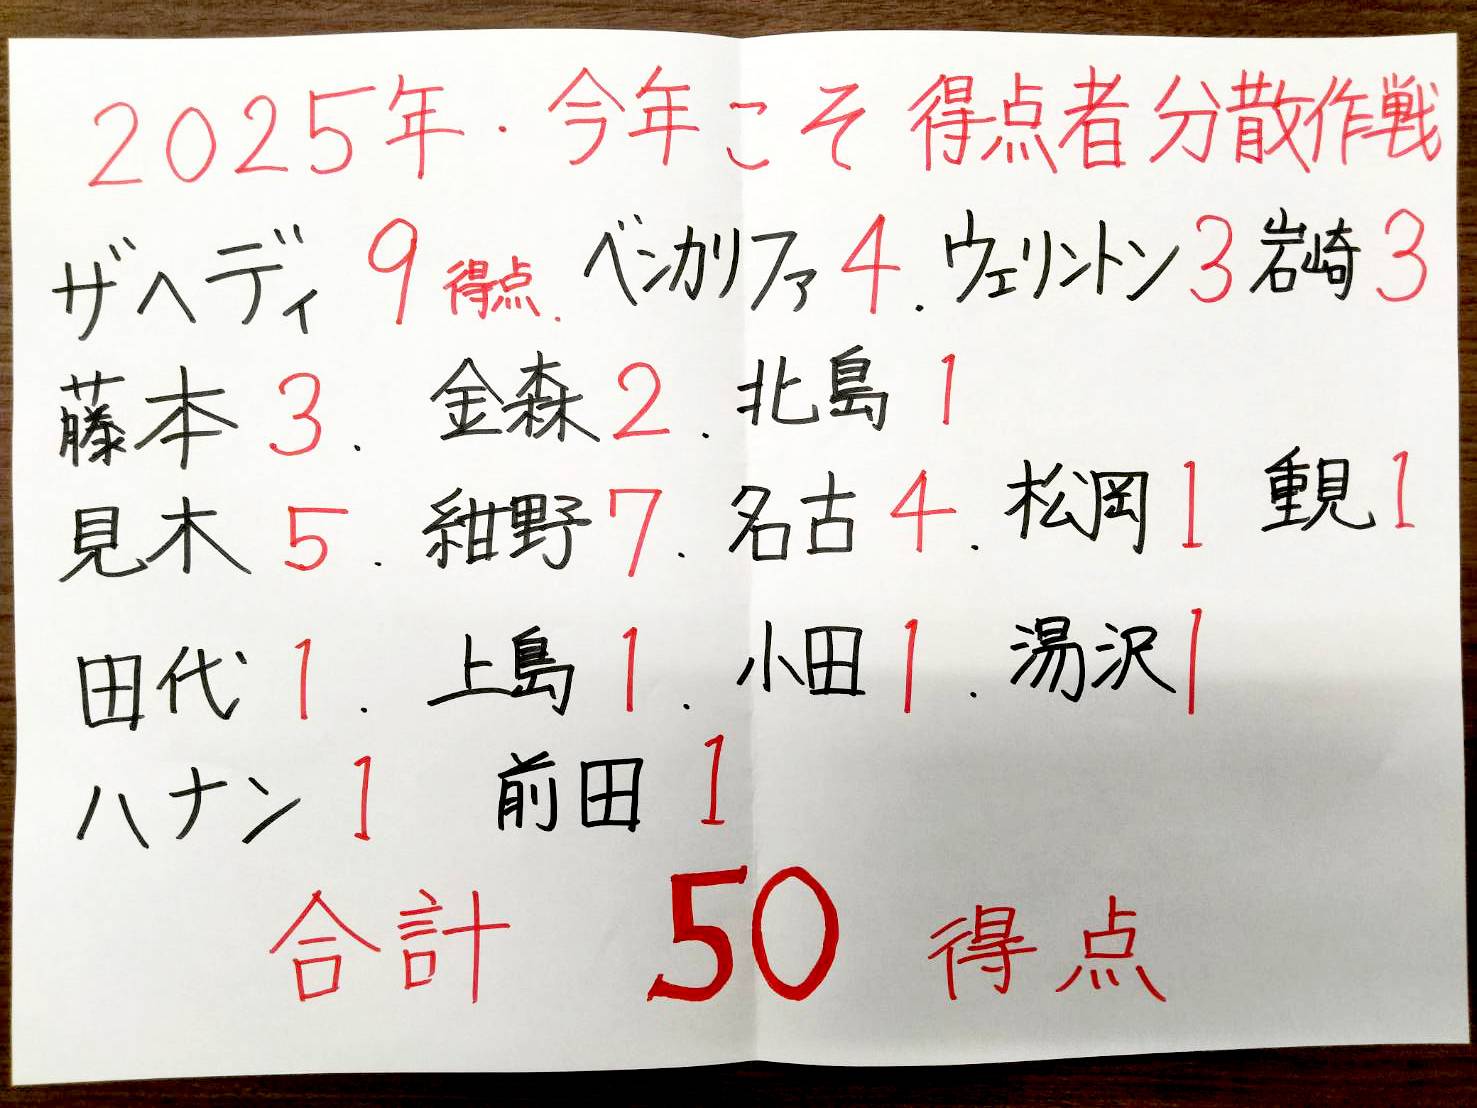 2025年.今年こそ得点者分散作戦
ザヘディ 9得点. ベンカリファ4. ウェリントン3 岩崎3
藤本3. 金森2. 北島1
見木5. 紺野7. 名古4. 松岡1 重見1
田代1. 上島1. 小田1. 湯沢1
ハナン1 前田1
合計 50 得点